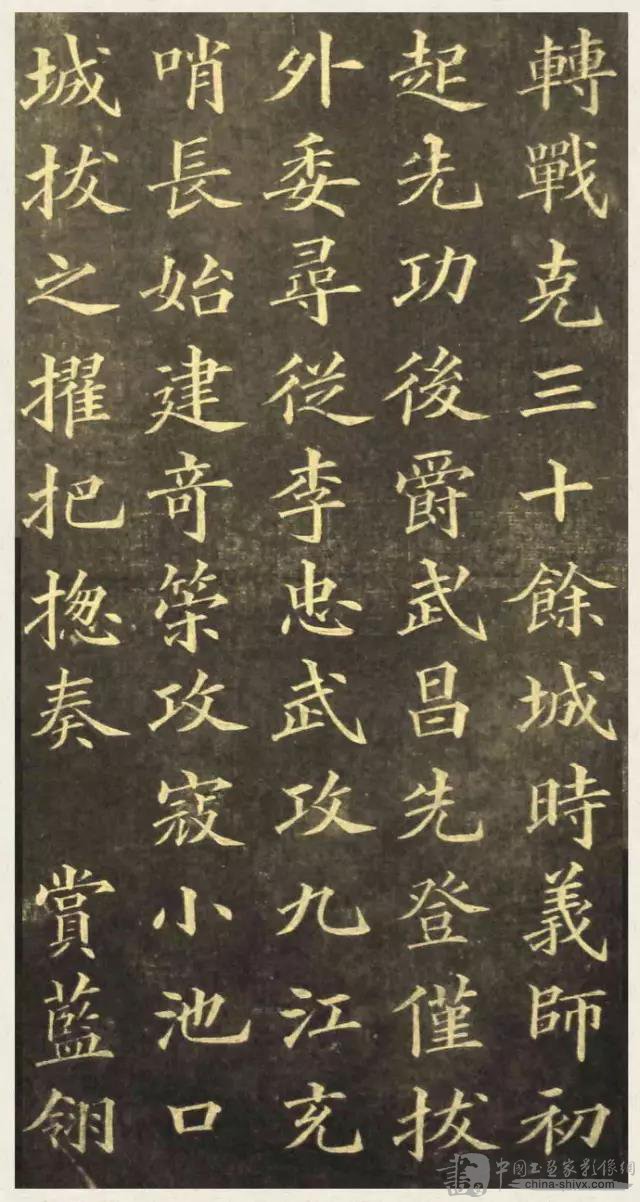 轉戰克三十餘城時義師初
起先功後爵武昌先登僅拔
外委尋從李忠武攻九江充
哨長始建竒策攻寇小池口
城拔之擢把揔奏 賞藍翎
中国书画家影像网
china-shiyx.com